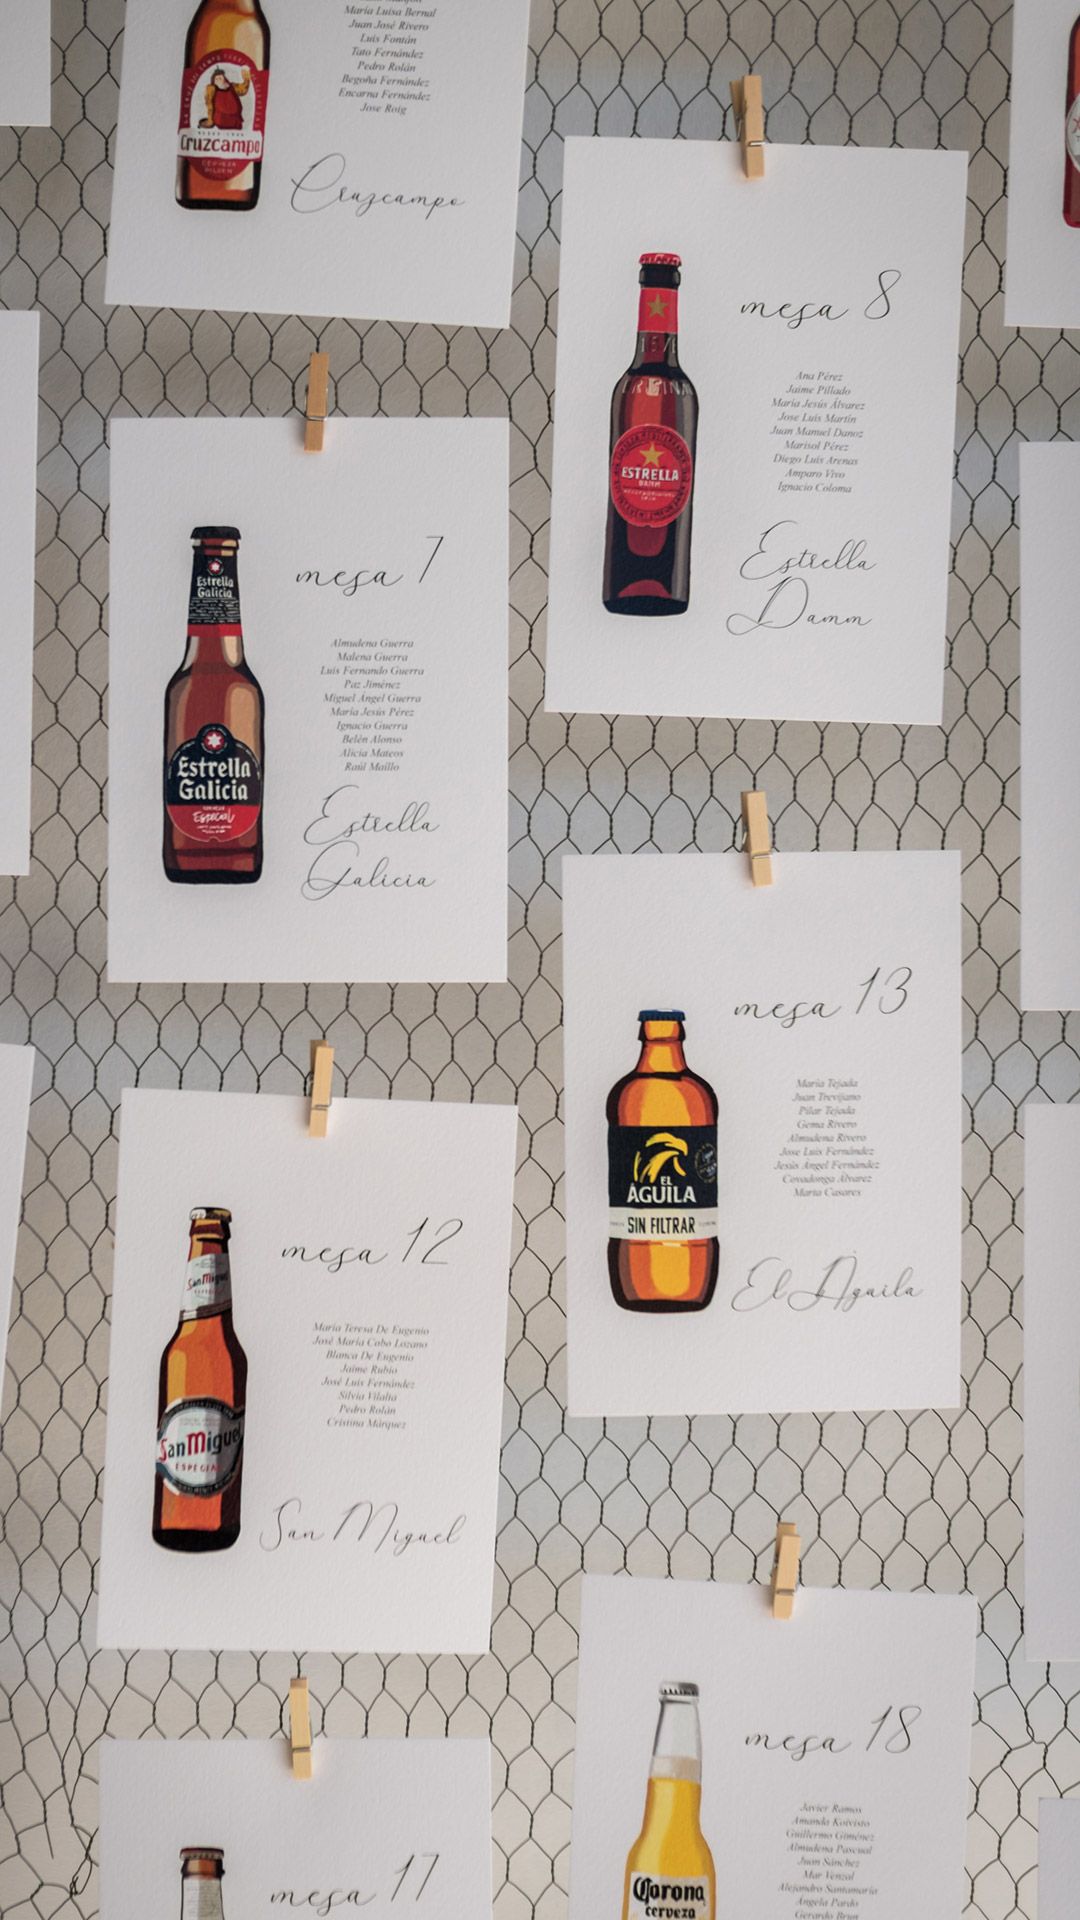 María Luisa Bernal
Juan José Rivero
Luis Fontán
Tato Fernández
Pedro Rolán
Begoña Fernández
Encarna Fernández
Jose Roig
Cruzcampo
CERVEZA
PILSEN
Cruzcampo
mesa 8
Ana Pérez
Jaime Pillado
María Jesús Álvarez
Jose Luis Martín
Juan Manuel Danoz
Marisol Pérez
Diego Luis Arenas
Amparo Vivo
Ignacio Coloma
ESTRELLA
DAMM
Estrella
Damm
mesa 7
Almudena Guerra
Malena Guerra
Luis Fernando Guerra
Paz Jiménez
Miguel Ángel Guerra
María Jesús Pérez
Ignacio Guerra
Belén Alonso
Alicia Mateos
Raúl Maíllo
Estrella
Galicia
Estrella
Galicia
Especial
Estrella
Galicia
mesa 13
María Tejada
Juan Trevijano
Pilar Tejada
Gema Rivero
Almudena Rivero
Jose Luis Fernández
Jesús Ángel Fernández
Covadonga Álvarez
Marta Casares
EL
ÁGUILA
SIN FILTRAR
El Águila
mesa 12
María Teresa De Eugenio
José María Cobo Lozano
Blanca De Eugenio
Jaime Rubio
José Luis Fernández
Silvia Vilalta
Pedro Rolán
Cristina Márquez
San Miguel
San Miguel
ESPECIAL
San Miguel
mesa 18
Javier Ramos
Amanda Koivisto
Guillermo Giménez
Almudena Pascual
Juan Sánchez
Mar Venzal
Alejandro Santamaría
Ángela Pardo
Gerardo Brun
Corona
cerveza
mesa 17